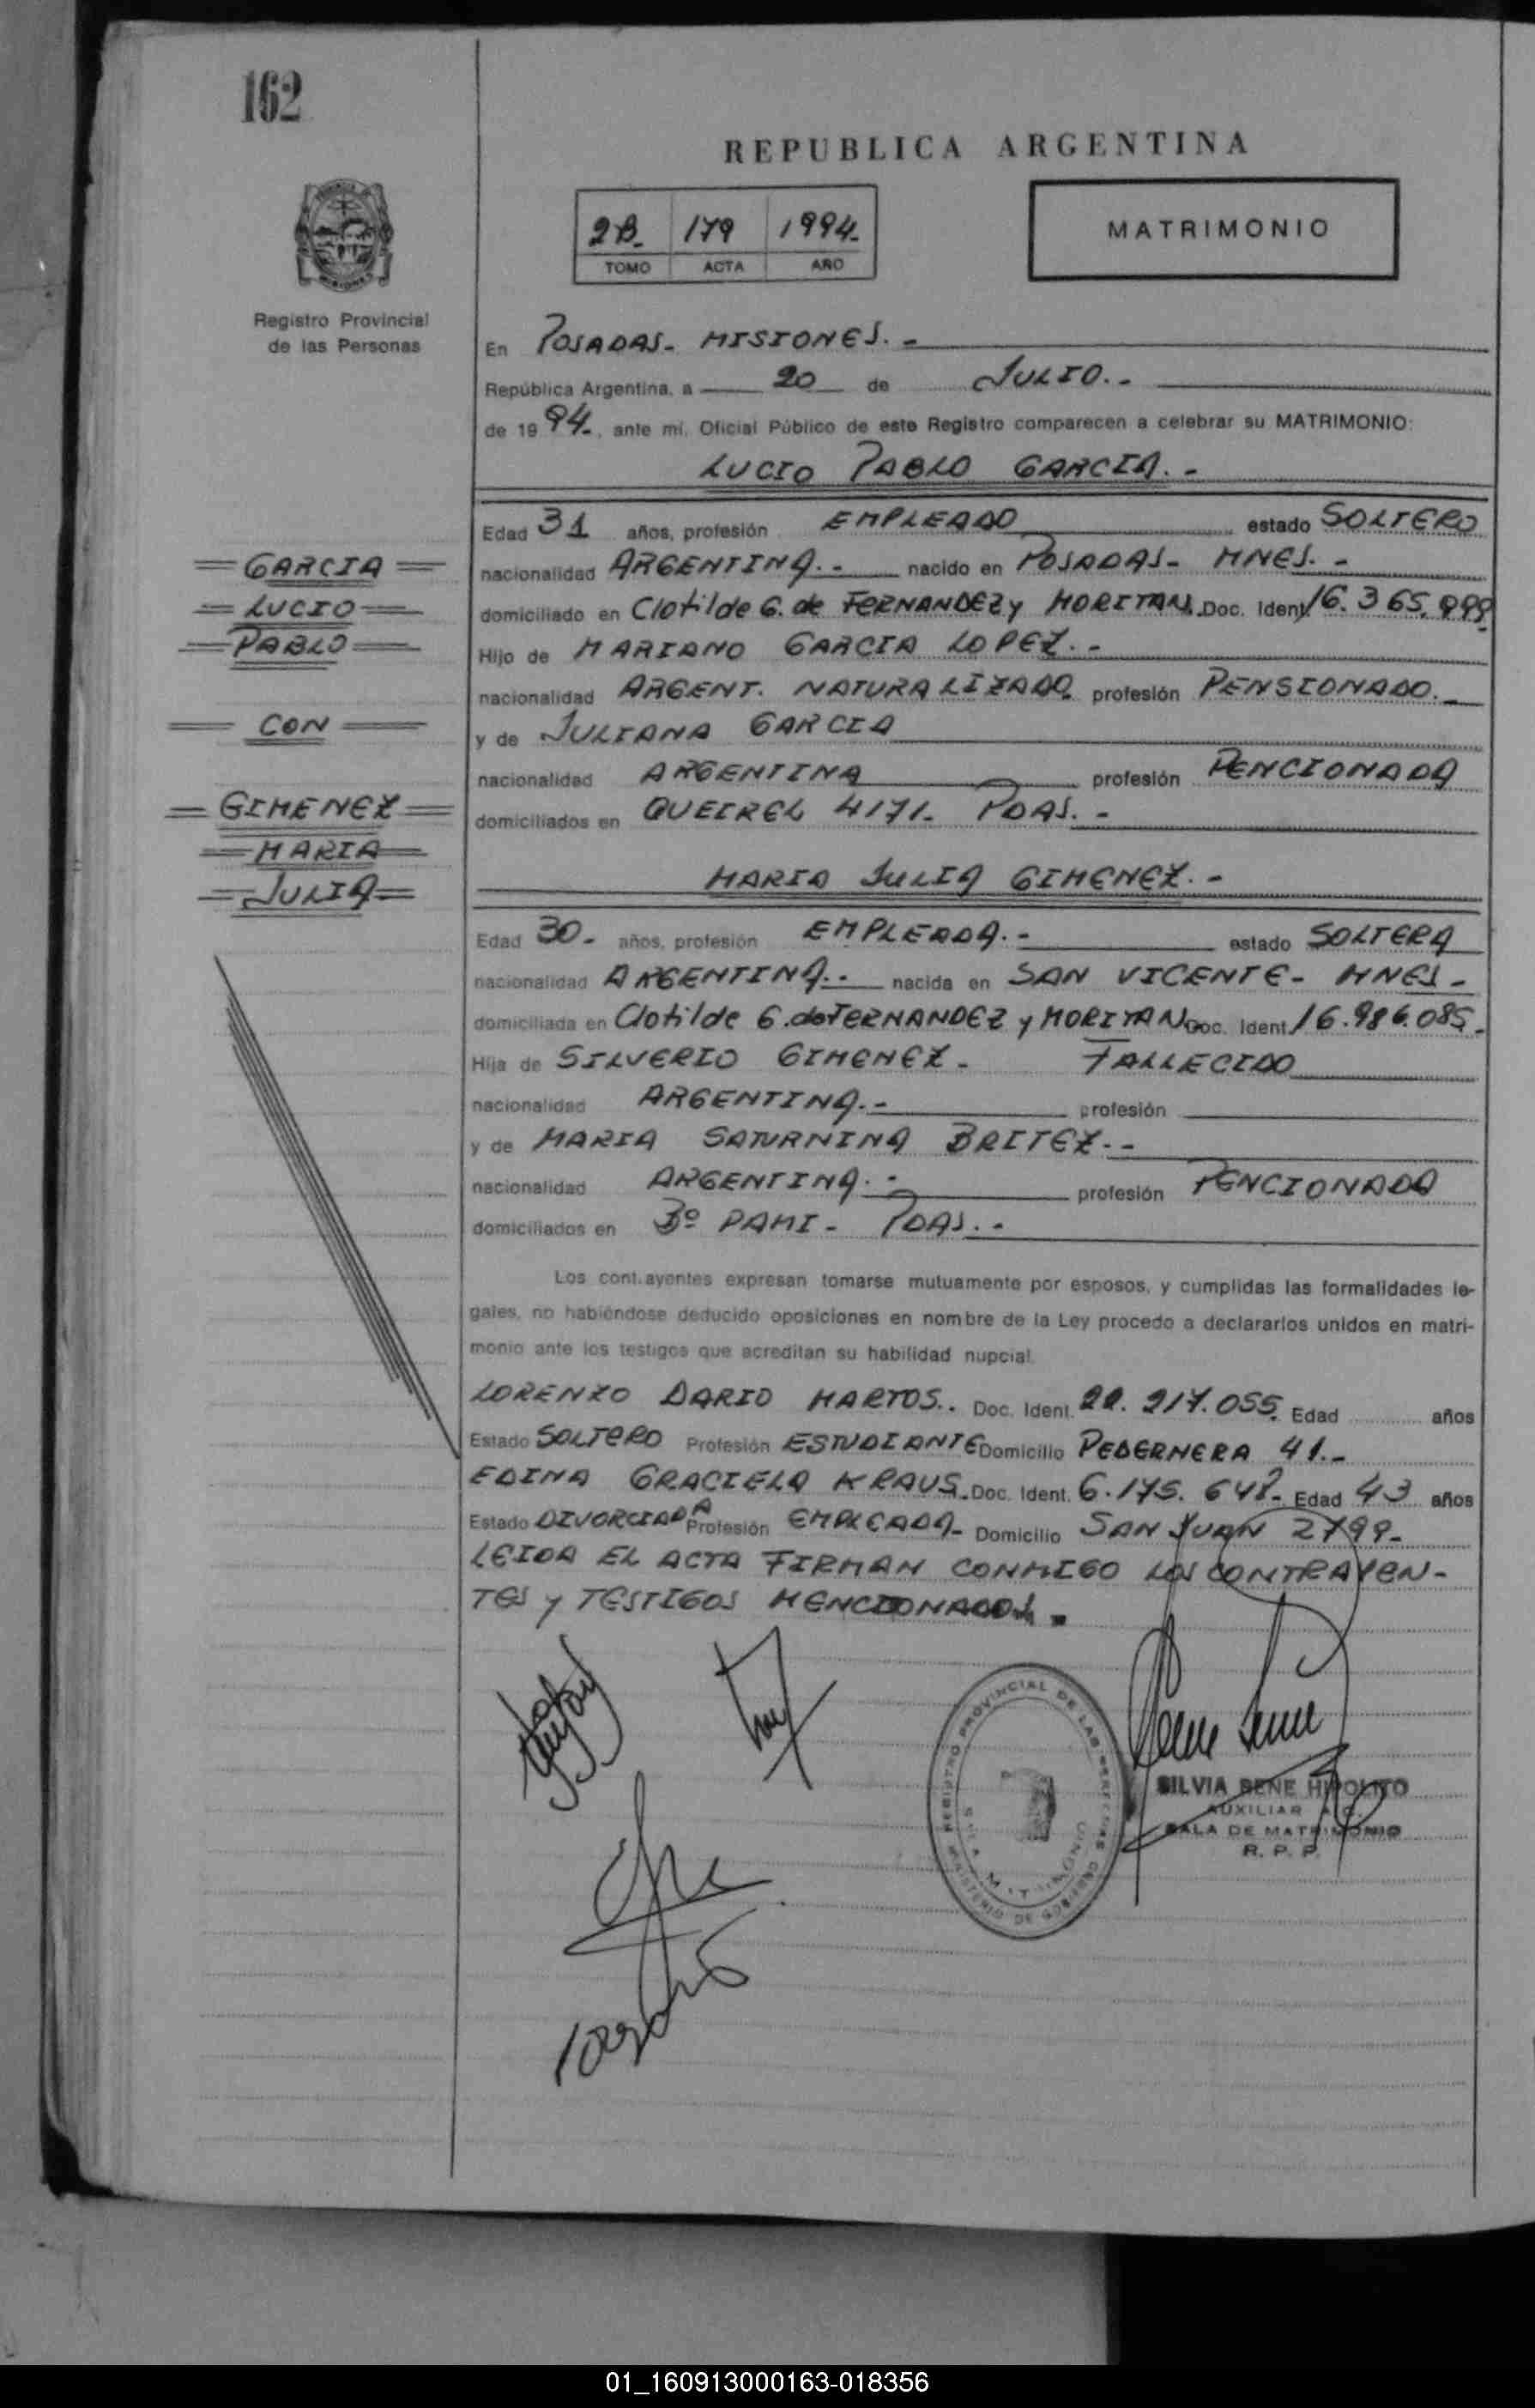 162
REPUBLICA ARGENTINA
2B. 179 1994.
TOMO ACTA AÑO
MATRIMONIO
Registro Provincial
de las Personas
En POSADAS- MISIONES.-
República Argentina, a 20 de JULIO.-
de 1994., ante mí, Oficial Público de este Registro comparecen a celebrar su MATRIMONIO:
LUCIO PABLO GARCIA.-
Edad 31 años, profesión EMPLEADO estado SOLTERO
GARCIA
nacionalidad ARGENTINA.- nacido en POSADAS- MNES.-
LUCIO
domiciliado en Clotilde G. de FERNANDEZ y MORITAN. Doc. Ident. 16.365.999
PABLO
Hijo de MARIANO GARCIA LOPEZ.-
nacionalidad ARGENT. NATURALIZADO profesión PENSIONADO.
CON
y de JULIANA GARCIA
nacionalidad ARGENTINA profesión PENCIONADA
GIMENEZ
domiciliados en QUEIREL 4171- PDAS.-
MARIA
JULIA
MARIA JULIA GIMENEZ.-
Edad 30- años, profesión EMPLEADA.- estado SOLTERA
nacionalidad ARGENTINA.- nacida en SAN VICENTE- MNES-
domiciliada en Clotilde G. de FERNANDEZ y MORITAN Doc. Ident. 16.986.085.
Hija de SILVERIO GIMENEZ- FALLECIDO
nacionalidad ARGENTINA.- profesión
y de MARIA SATURNINA BRITEZ.-
nacionalidad ARGENTINA.- profesión PENCIONADA
domiciliados en Bº PAMI- PDAS.-
Los contrayentes expresan tomarse mutuamente por esposos, y cumplidas las formalidades le-
gales, no habiéndose deducido oposiciones en nombre de la Ley procedo a declararlos unidos en matri-
monio ante los testigos que acreditan su habilidad nupcial.
LORENZO DARIO MARTOS.. Doc. Ident. 22.217.055. Edad años
Estado SOLTERO Profesión ESTUDIANTE Domicilio PEDERNERA 41.-
EDINA GRACIELA KRAUS. Doc. Ident. 6.175. Edad 43 años
Estado DIVORCIADA Profesión EMPLEADA- Domicilio SAN JUAN 2799-
LEIDA EL ACTA FIRMAN CONMIGO LOS CONTRAYEN-
TES y TESTIGOS MENCIONADOS.
REGISTRO PROVINCIAL DE LAS PERSONAS
MINISTERIO DE GOBIERNO
SALA MATRIMONIO
SILVIA RENE HIPOLITO
AUXILIAR
SALA DE MATRIMONIO
R. P. P.
01_160913000163-018356